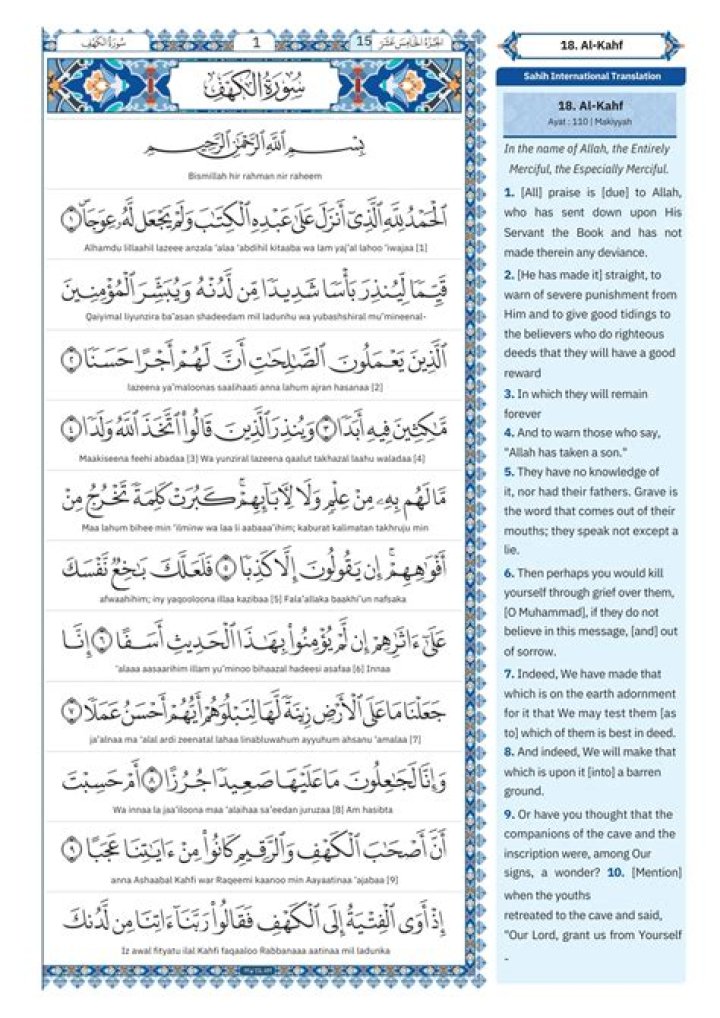 سُورَةُ الكَهْفِ
1
15 الجُزْءُ الخَامِسَ عَشَرَ
سُورَةُ الْكَهْفِ
بِسْمِ ٱللَّهِ ٱلرَّحْمَٰنِ ٱلرَّحِيمِ
Bismillah hir rahman nir raheem
ٱلْحَمْدُ لِلَّهِ ٱلَّذِىٓ أَنزَلَ عَلَىٰ عَبْدِهِ ٱلْكِتَٰبَ وَلَمْ يَجْعَل لَّهُۥ عِوَجَا ۜ ١
Alhamdu lillaahil lazeee anzala 'alaa 'abdihil kitaaba wa lam yaj'al lahoo 'iwajaa [1]
قَيِّمًا لِّيُنذِرَ بَأْسًا شَدِيدًا مِّن لَّدُنْهُ وَيُبَشِّرَ ٱلْمُؤْمِنِينَ
Qaiyimal liyunzira ba'asan shadeedam mil ladunhu wa yubashshiral mu'mineenal-
ٱلَّذِينَ يَعْمَلُونَ ٱلصَّٰلِحَٰتِ أَنَّ لَهُمْ أَجْرًا حَسَنًا ٢
lazeena ya'maloonas saalihaati anna lahum ajran hasanaa [2]
مَّٰكِثِينَ فِيهِ أَبَدًا ٣ وَيُنذِرَ ٱلَّذِينَ قَالُوا۟ ٱتَّخَذَ ٱللَّهُ وَلَدًا ٤
Maakiseena feehi abadaa [3] Wa yunziral lazeena qaalut takhazal laahu waladaa [4]
مَّا لَهُم بِهِۦ مِنْ عِلْمٍ وَلَا لِءَابَآئِهِمْ ۚ كَبُرَتْ كَلِمَةً تَخْرُجُ مِنْ
Maa lahum bihee min 'ilminw wa laa li aabaaa'ihim; kaburat kalimatan takhruju min
أَفْوَٰهِهِمْ ۚ إِن يَقُولُونَ إِلَّا كَذِبًا ٥ فَلَعَلَّكَ بَٰخِعٌ نَّفْسَكَ
afwaahihim; iny yaqooloona illaa kazibaa [5] Fala'allaka baakhi'un nafsaka
عَلَىٰٓ ءَاثَٰرِهِمْ إِن لَّمْ يُؤْمِنُوا۟ بِهَٰذَا ٱلْحَدِيثِ أَسَفًا ٦ إِنَّا
'alaaa aasaarihim illam yu'minoo bihaazal hadeesi asafaa [6] Innaa
جَعَلْنَا مَا عَلَى ٱلْأَرْضِ زِينَةً لَّهَا لِنَبْلُوَهُمْ أَيُّهُمْ أَحْسَنُ عَمَلًا ٧
ja'alnaa ma 'alal ardi zeenatal lahaa linabluwahum ayyuhum ahsanu 'amalaa [7]
وَإِنَّا لَجَٰعِلُونَ مَا عَلَيْهَا صَعِيدًا جُرُزًا ٨ أَمْ حَسِبْتَ
Wa innaa la jaa'iloona maa 'alaihaa sa'eedan juruzaa [8] Am hasibta
أَنَّ أَصْحَٰبَ ٱلْكَهْفِ وَٱلرَّقِيمِ كَانُوا۟ مِنْ ءَايَٰتِنَا عَجَبًا ٩
anna Ashaabal Kahfi war Raqeemi kaanoo min Aayaatinaa 'ajabaa [9]
إِذْ أَوَى ٱلْفِتْيَةُ إِلَى ٱلْكَهْفِ فَقَالُوا۟ رَبَّنَآ ءَاتِنَا مِن لَّدُنكَ
Iz awal fityatu ilal Kahfi faqaaloo Rabbanaaa aatinaa mil ladunka
18. Al-Kahf
Sahih International Translation
18. Al-Kahf
Ayat : 110 | Makiyyah
In the name of Allah, the Entirely
Merciful, the Especially Merciful.
1. [All] praise is [due] to Allah,
who has sent down upon His
Servant the Book and has not
made therein any deviance.
2. [He has made it] straight, to
warn of severe punishment from
Him and to give good tidings to
the believers who do righteous
deeds that they will have a good
reward
3. In which they will remain
forever
4. And to warn those who say,
"Allah has taken a son."
5. They have no knowledge of
it, nor had their fathers. Grave is
the word that comes out of their
mouths; they speak not except a
lie.
6. Then perhaps you would kill
yourself through grief over them,
[O Muhammad], if they do not
believe in this message, [and] out
of sorrow.
7. Indeed, We have made that
which is on the earth adornment
for it that We may test them [as
to] which of them is best in deed.
8. And indeed, We will make that
which is upon it [into] a barren
ground.
9. Or have you thought that the
companions of the cave and the
inscription were, among Our
signs, a wonder? 10. [Mention]
when the youths
retreated to the cave and said,
"Our Lord, grant us from Yourself
-